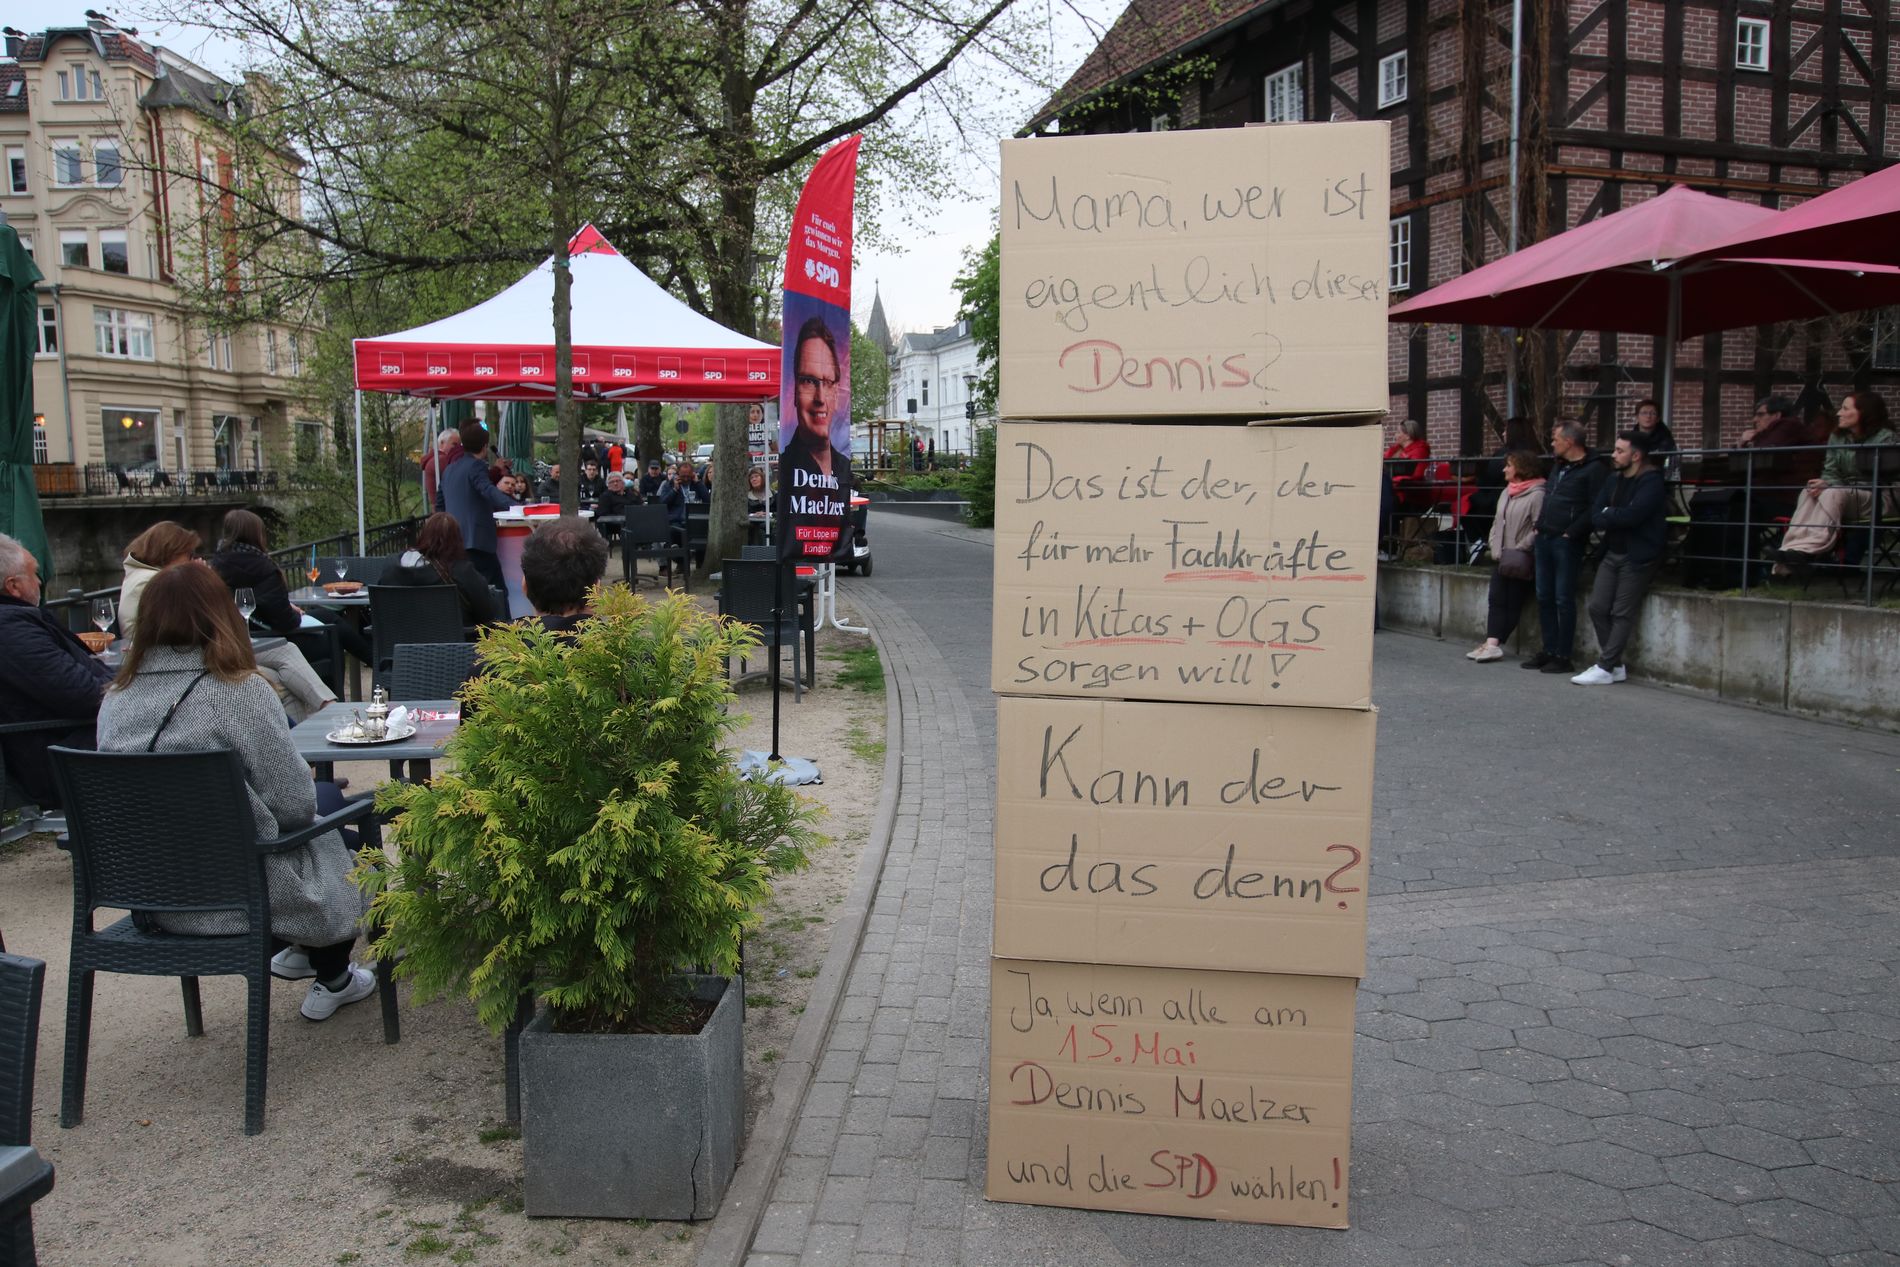 Mama, wer ist
eigentlich dieser
Dennis?
Das ist der, der
für mehr Fachkräfte
in Kitas + OGS
sorgen will!
Kann der
das denn?
Ja, wenn alle am
15. Mai
Dennis Maelzer
und die SPD wählen!
Für euch
gewinnen wir
das Morgen.
SPD
Dennis
Maelzer
Für Lippe im
Landtag
SPD
SPD
SPD
SPD
SPD
SPD
SPD
SPD
SPD
DIE LINKE